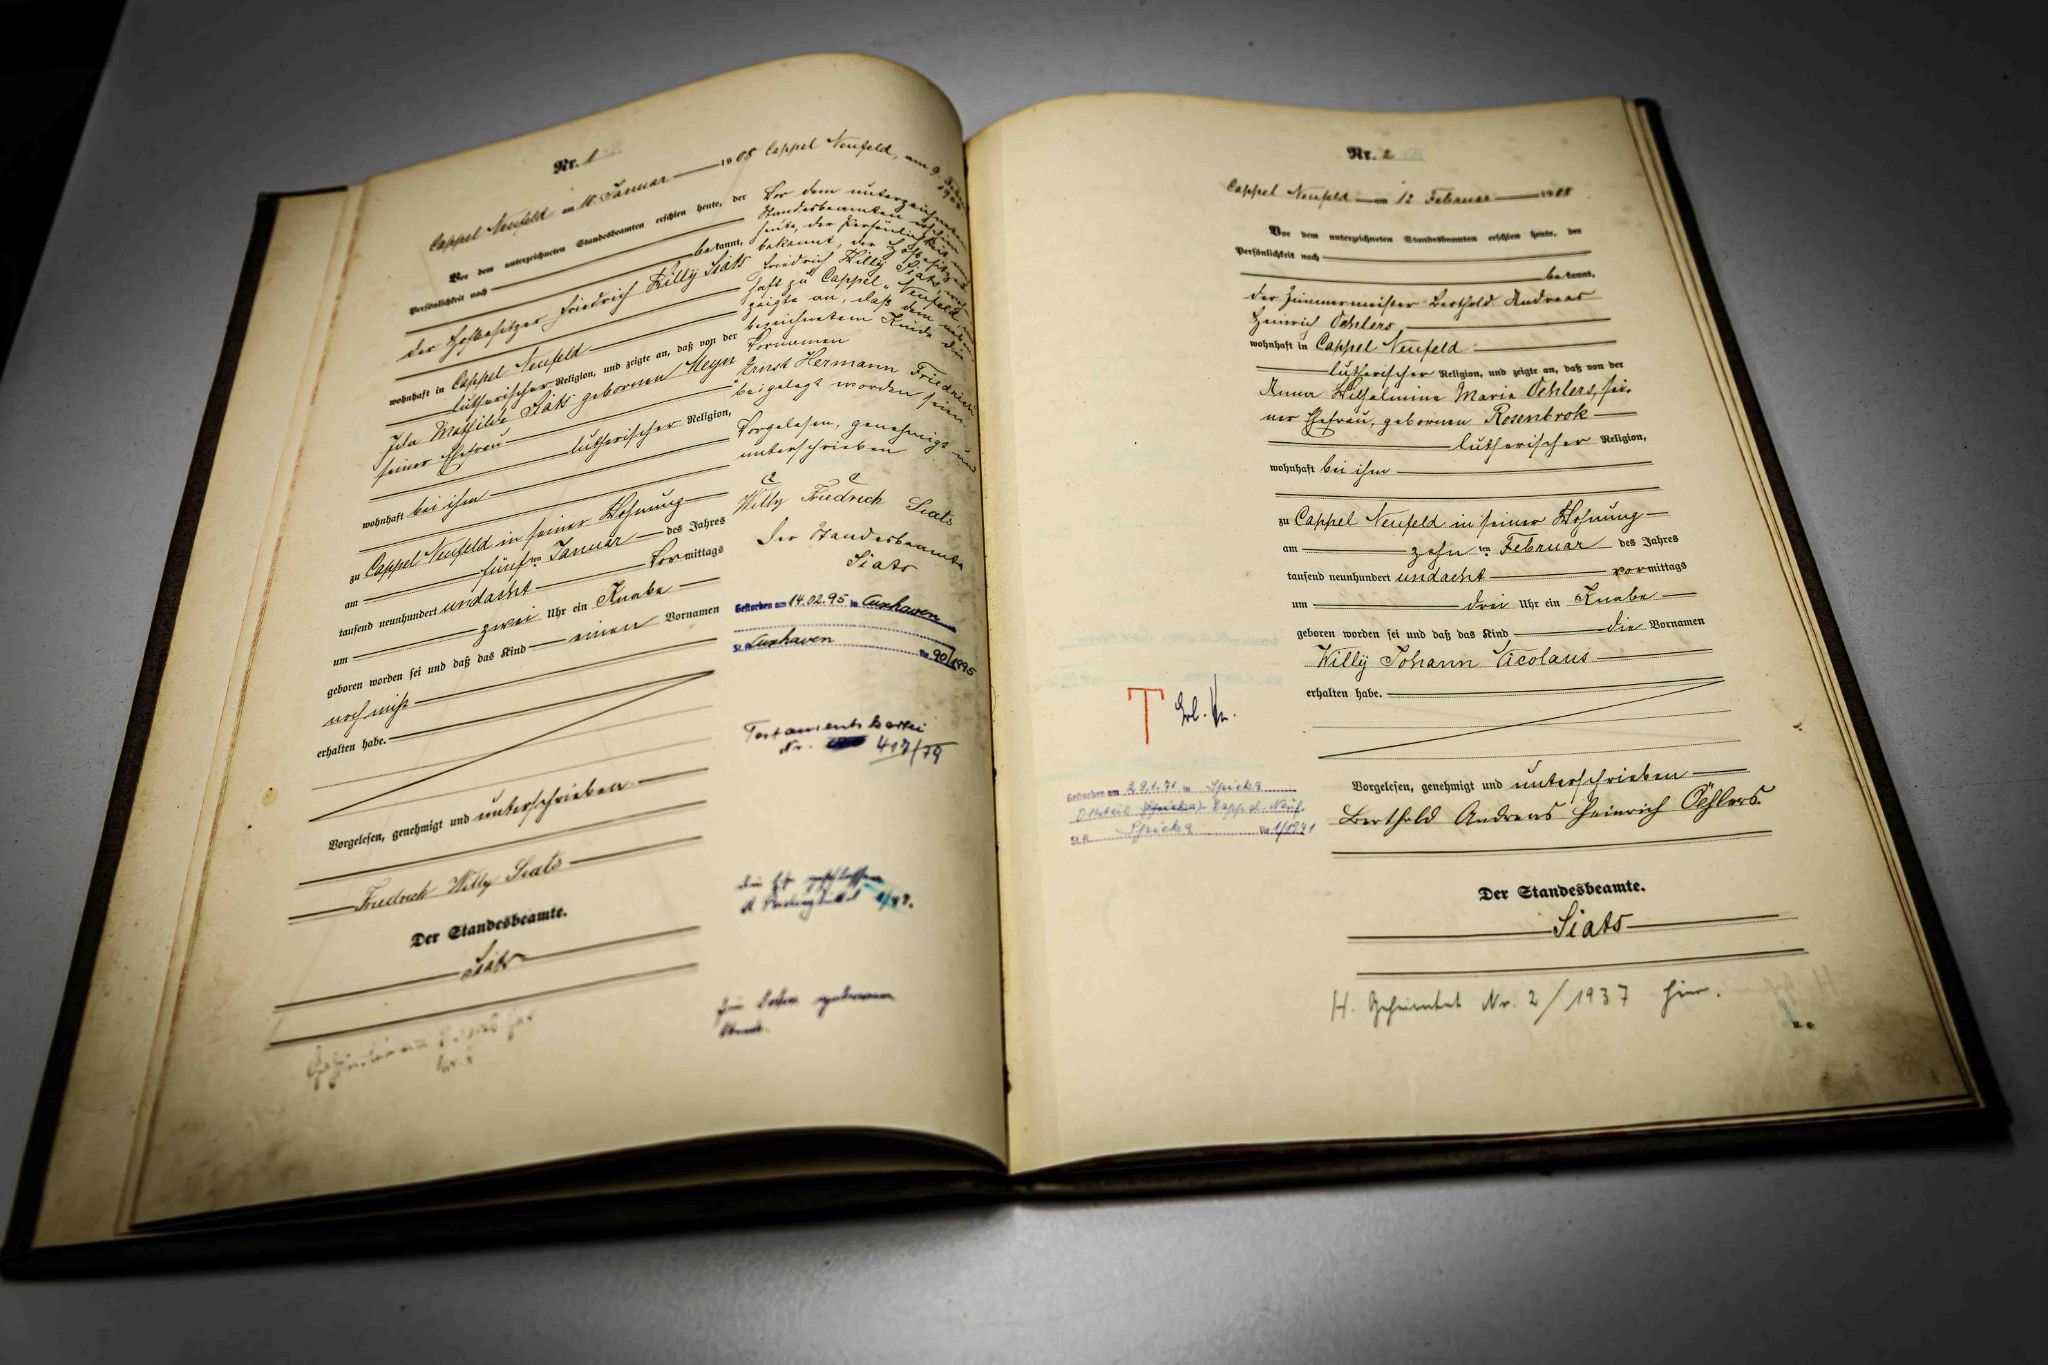 Nr. 1
Cappel Neufeld am 10. Januar 1908
Vor dem unterzeichneten Standesbeamten erschien heute, der
Persönlichkeit nach
bekannt,
der Hofbesitzer Friedrich Willy Siats
wohnhaft in Cappel Neufeld
lutherischer Religion, und zeigte an, daß von der
Ida Mathilde Siats gebornen Meyn
seiner Ehefrau
lutherischer Religion,
wohnhaft bei ihm
zu Cappel Neufeld in seiner Wohnung
am fünften Januar des Jahres
tausend neunhundert undacht Vormittags
um zwei Uhr ein Knabe
geboren worden sei und daß das Kind einen Vornamen
noch nicht
erhalten habe.
Vorgelesen, genehmigt und unterschrieben.
Friedrich Willy Siats
Der Standesbeamte.
Siats
Cappel Neufeld, am 9.
Vor dem unterzeichneten
Standesbeamten erschien
heute, der Persönlichkeit nach
bekannt, der Hofbesitzer
Friedrich Willy Siats
haft zu Cappel-Neufeld, und
zeigte an, daß dem neben
bezeichneten Kinde die
Vornamen
"Ernst Hermann Friedrich"
beigelegt worden seien.
Vorgelesen, genehmigt und
unterschrieben
Willy Friedrich Siats
Der Standesbeamte
Siats
Gestorben am 14.02.95 in Cuxhaven
St.A. Cuxhaven Nr. 90/1995
Testamentskartei
Nr. 417/79
Nr. 2
Cappel Neufeld am 12 Februar 1908
Vor dem unterzeichneten Standesbeamten erschien heute, der
Persönlichkeit nach
bekannt,
der Zimmermeister Berthold Andreas
Heinrich Oehlers
wohnhaft in Cappel Neufeld
lutherischer Religion, und zeigte an, daß von der
Anna Wilhelmine Marie Oehlers, sei-
ner Ehefrau, gebornen Rosenbrok
lutherischer Religion,
wohnhaft bei ihm
zu Cappel Neufeld in seiner Wohnung
am zehnten Februar des Jahres
tausend neunhundert undacht vormittags
um drei Uhr ein Knabe
geboren worden sei und daß das Kind die Vornamen
Willy Johann Nicolaus
erhalten habe.
Vorgelesen, genehmigt und unterschrieben
Berthold Andreas Heinrich Öehlers.
Der Standesbeamte.
Siats
H. Geheiratet Nr. 2/1937 hier.
T
Gestorben am 29.1.71 in Spieka
Ortsteil Cappel-Neuf.
St.A. Spieka Nr. 1/1971